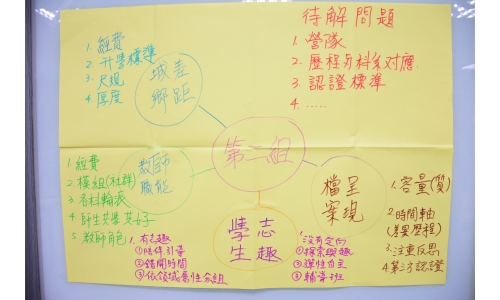 待解問題
1. 營隊
2. 歷程与科系对應
3. 認證標準
4. .....
1. 經費
2. 升學標準
3. 尺規
4. 厚度
城鄉
差距
第二組
教師
職能
1. 經費
2. 模組(社群)
3. 各科輪派
4. 師生共學共好
5. 教師角色
檔案
呈現
1. 容量(質)
2. 時間軸
(差異歷程)
3. 注重反思
4. 第三方認證
學生
志趣
1. 有志趣
①陪伴引導
②錯開時間
③依領域屬性分組
1. 沒有定向
①探索興趣
②導性自主
③輔導班